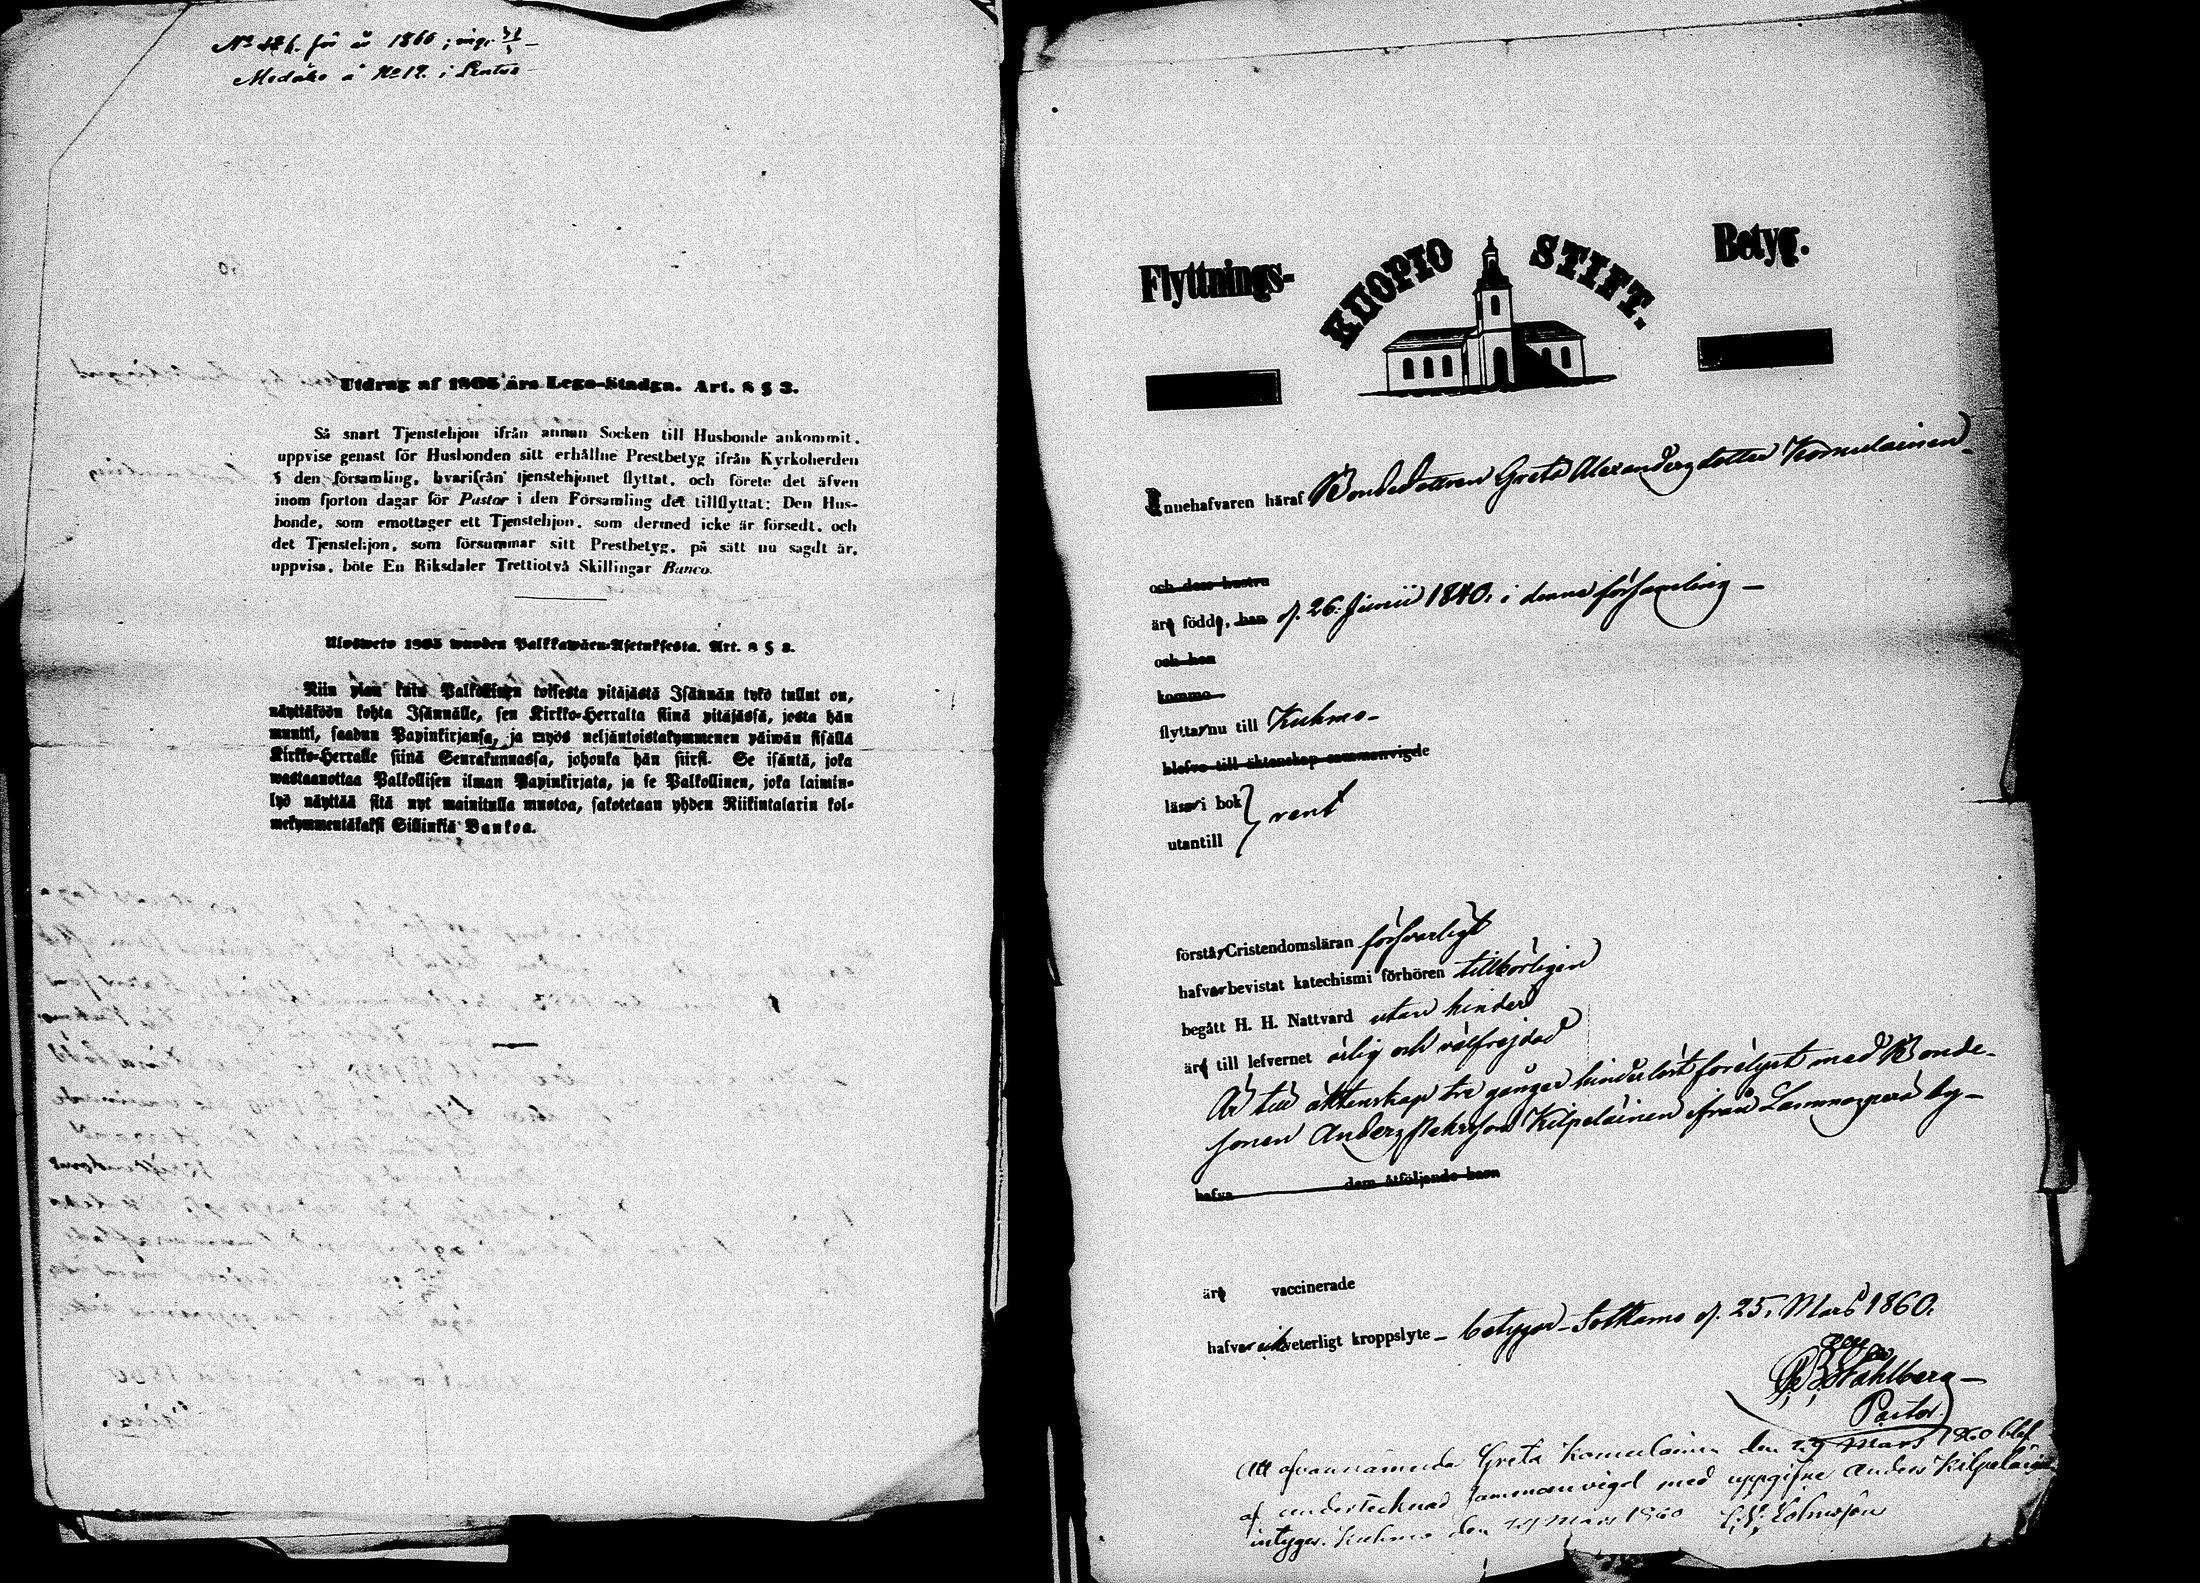 för år 1860
å No 19. i
Utdrag af 1805 års Lego-Stadga. Art. 8 § 3.
Så snart Tjenstehjon ifrån annan Socken till Husbonde ankommit,
uppvise genast för Husbonden sitt erhållne Prestbetyg ifrån Kyrkoherden
i den församling, hvarifrån tjenstehjonet flyttat, och förete det äfven
inom fjorton dagar för Pastor i den Församling det tillflyttat: Den Hus-
bonde, som emottager ett Tjenstehjon, som dermed icke är försedt, och
det Tjenstehjon, som försummar sitt Prestbetyg, på sätt nu sagdt är,
uppvisa, böte En Riksdaler Trettiotvå Skillingar Banco.
Ulosweto 1805 wuoden Palkkawäen-Asetuksesta. Art. 8 § 3.
Niin pian kuin Palkollinen toisesta pitäjästä Isännän tykö tullut on,
näyttäköön kohta Isännälle, sen Kirkko-Herralta siinä pitäjässä, josta hän
muutti, saadun Papinkirjansa, ja myös neljäntoistakymmenen päiwän sisällä
Kirkko-Herralle siinä Seurakunnassa, johonka hän siirsi. Se isäntä, joka
wastaanottaa Palkollisen ilman Papinkirjata, ja se Palkollinen, joka laimin-
lyö näyttää sitä nyt mainitulla muotoa, sakotetaan yhden Riikintalarin kol-
mekymmentäkaksi Sillinkiä Bankoa.
Flyttnings- KUOPIO STIFT. Betyg.
Innehafvaren häraf Bondedottren Greta Alexandersdotter Komulainen
och dess hustru
äro födde, han d. 26. Junii 1840. i denna församling –
och hon
komma
flytta nu till Kuhmo –
blefvo till äktenskap sammanvigde
läsa i bok
rent
utantill
förstå Cristendomsläran försvarligt
hafva bevistat katechismi förhören tillbörligen
begått H. H. Nattvard utan hinder
äro till lefvernet ärlig och välfrejdad
Är till äktenskap tre gånger hinderlöst förelyst med Bonde-
sonen Anders Kilpeläinen ifrån Lammasperä by –
hafva dem åtföljande barn
äro vaccinerade
hafva ej veterligt kroppslyte – betygar – Sotkamo d. 25. Mars 1860.
Ståhlberg –
Pastor.
Att ofvannämnda Greta Komulainen den 29 Mars 1860 blef
af undertecknad sammanvigd med uppgifne Anders Kilpeläinen
intygar. Kuhmo den 29 Mars 1860